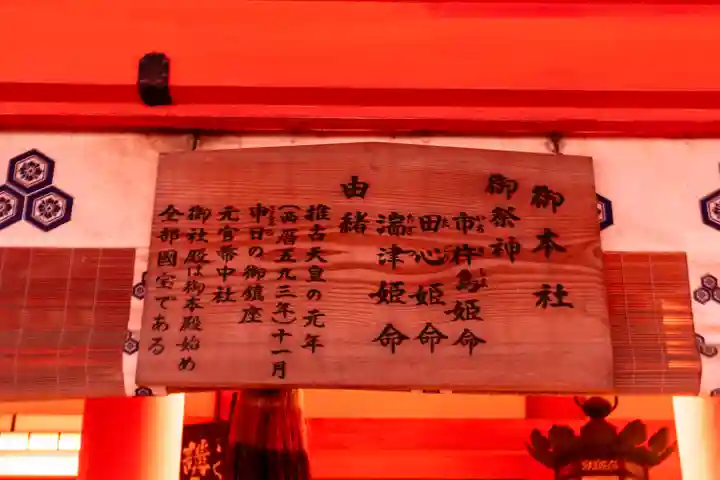 御本社
御祭神
市杵島姫命
田心姫命
湍津姫命
由緒
推古天皇の元年
(西暦五九三年)十一月
申日の御鎮座
元官幣中社
御社殿は御本殿始め
全部國宝である